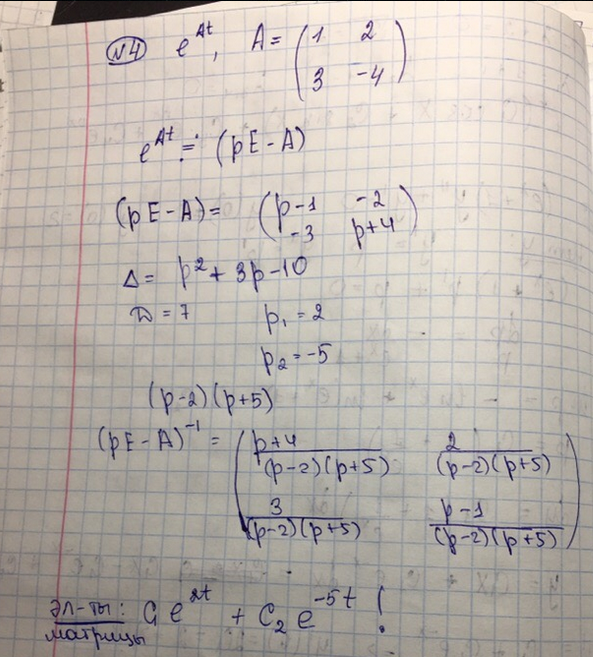 №4 e^{At}, A = (1 2
3 -4)
e^{At} ≓ (pE-A)
(pE-A) = (p-1 -2
-3 p+4)
Δ = p²+3p-10
D = 7 p₁ = 2
p₂ = -5
(p-2)(p+5)
(pE-A)⁻¹ = (p+4/(p-2)(p+5) 2/(p-2)(p+5)
3/(p-2)(p+5) p-1/(p-2)(p+5))
эл-ты: C₁e^{2t} + C₂e^{-5t} !
матрицы